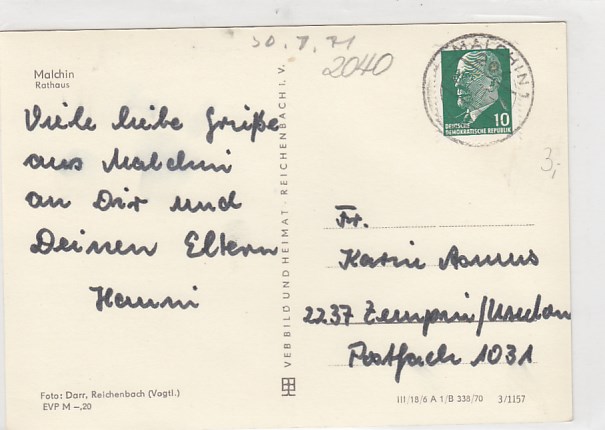 30.7.71
2040
MALCHIN 1
10
DEUTSCHE
DEMOKRATISCHE REPUBLIK
3,-
Malchin
Rathaus
Viele liebe Grüße
aus Malchin
an Dir und
Deinen Eltern
Hanni
VEB BILD UND HEIMAT · REICHENBACH I. V.
Fr.
Karin Asmus
2237 Zempin/Usedom
Postfach 1031
Foto: Darr, Reichenbach (Vogtl.)
EVP M –,20
III/18/6 A 1/B 338/70 3/1157